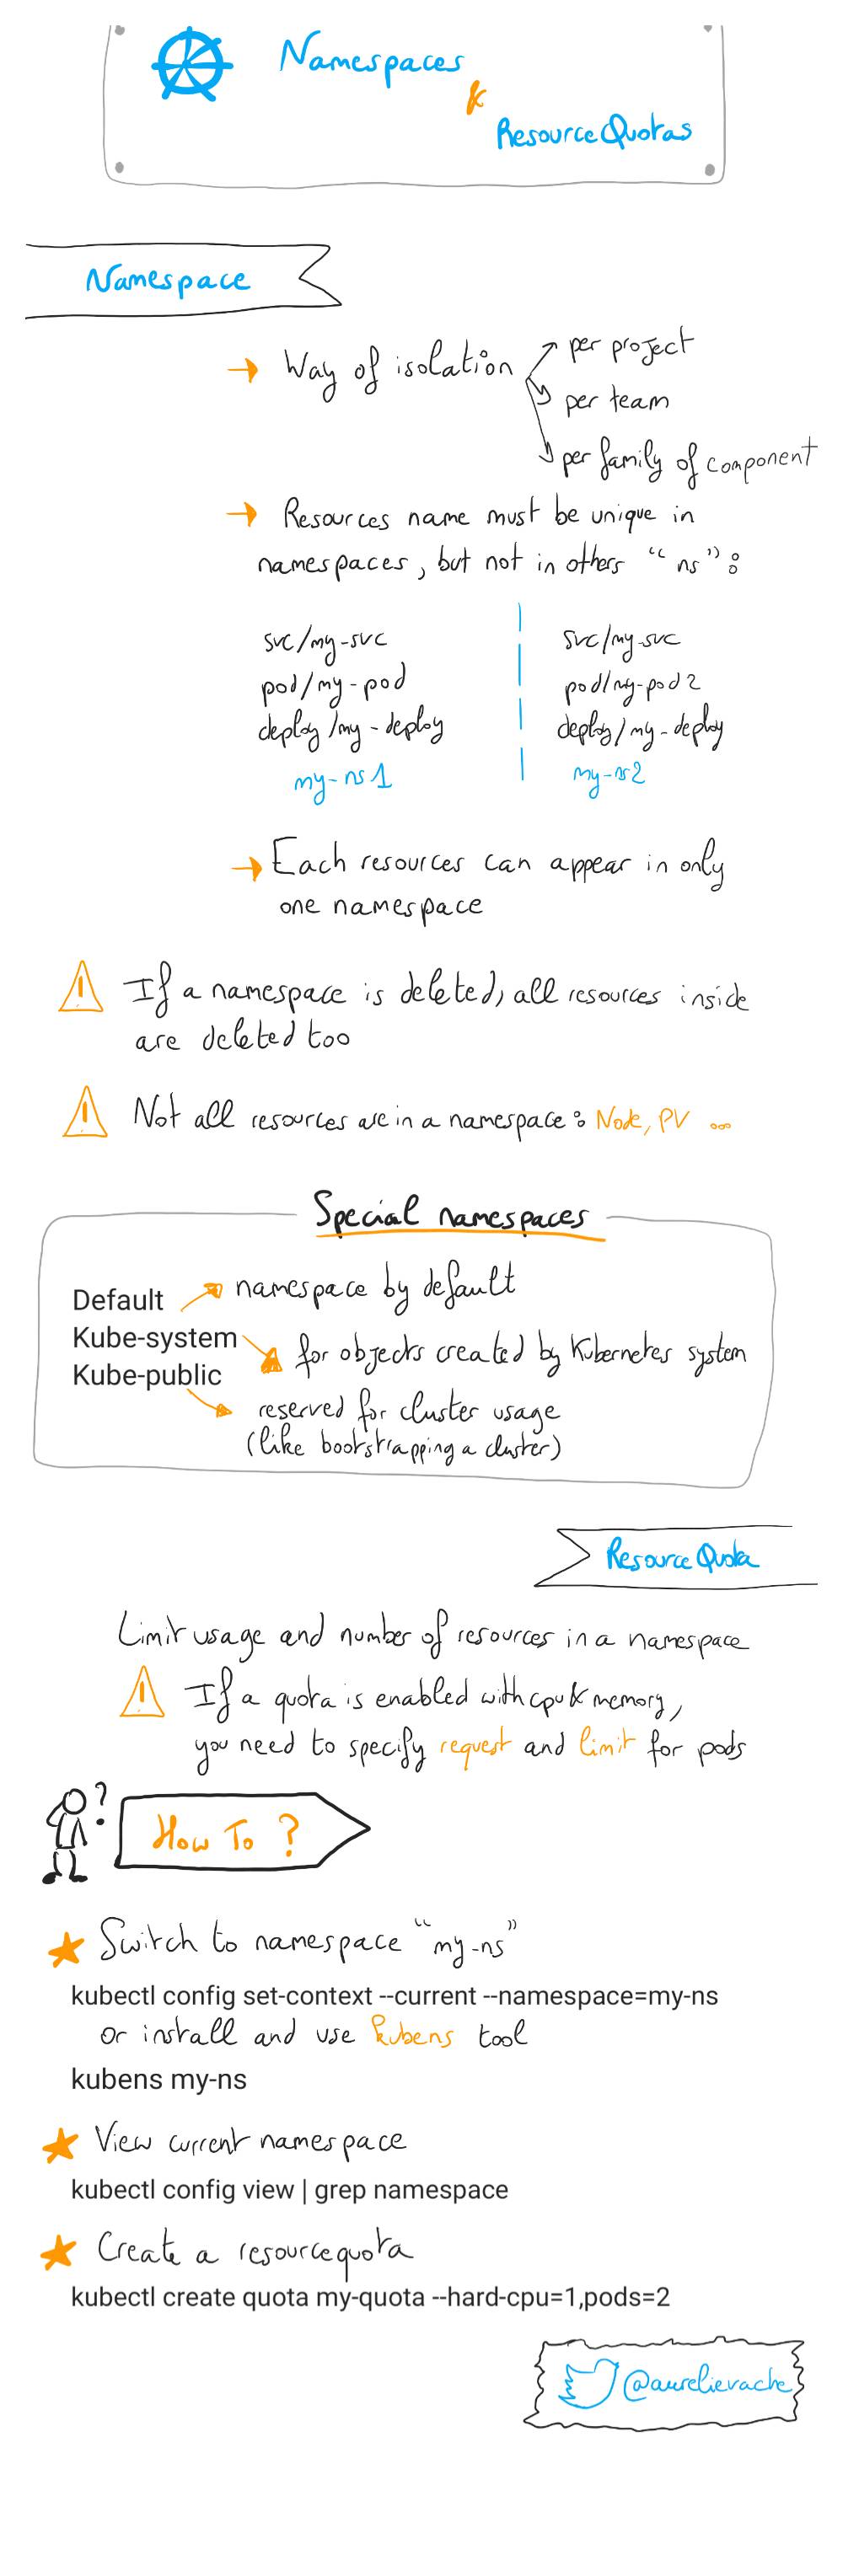 Namespaces
&
ResourceQuotas
Namespace
→ Way of isolation
per project
per team
per family of component
→ Resources name must be unique in
namespaces, but not in others "ns":
svc/my-svc
pod/my-pod
deploy/my-deploy
my-ns1
svc/my-svc
pod/my-pod2
deploy/my-deploy
my-ns2
→ Each resources can appear in only
one namespace
If a namespace is deleted, all resources inside
are deleted too
Not all resources are in a namespace: Node, PV ...
Special namespaces
Default → namespace by default
Kube-system → for objects created by Kubernetes system
Kube-public → reserved for cluster usage
(like bootstrapping a cluster)
Resource Quota
Limit usage and number of resources in a namespace
If a quota is enabled with cpu & memory,
you need to specify request and limit for pods
?
How To ?
Switch to namespace "my-ns"
kubectl config set-context --current --namespace=my-ns
or install and use kubens tool
kubens my-ns
View current namespace
kubectl config view | grep namespace
Create a resourcequota
kubectl create quota my-quota --hard-cpu=1,pods=2
@aurelievache